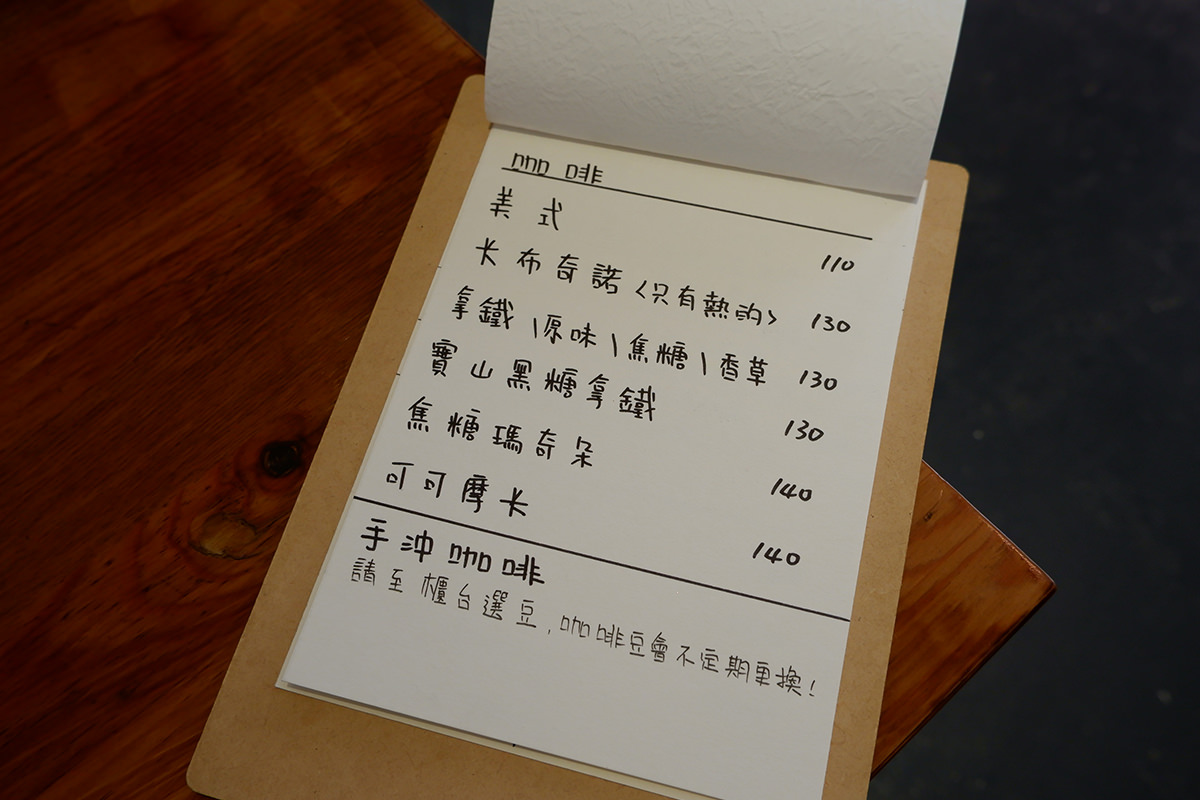 咖啡
美式 110
卡布奇諾<只有熱的> 130
拿鐵\原味\焦糖\香草 130
寶山黑糖拿鐵 130
焦糖瑪奇朵 140
可可摩卡 140
手沖咖啡
請至櫃台選豆,咖啡豆會不定期更換!